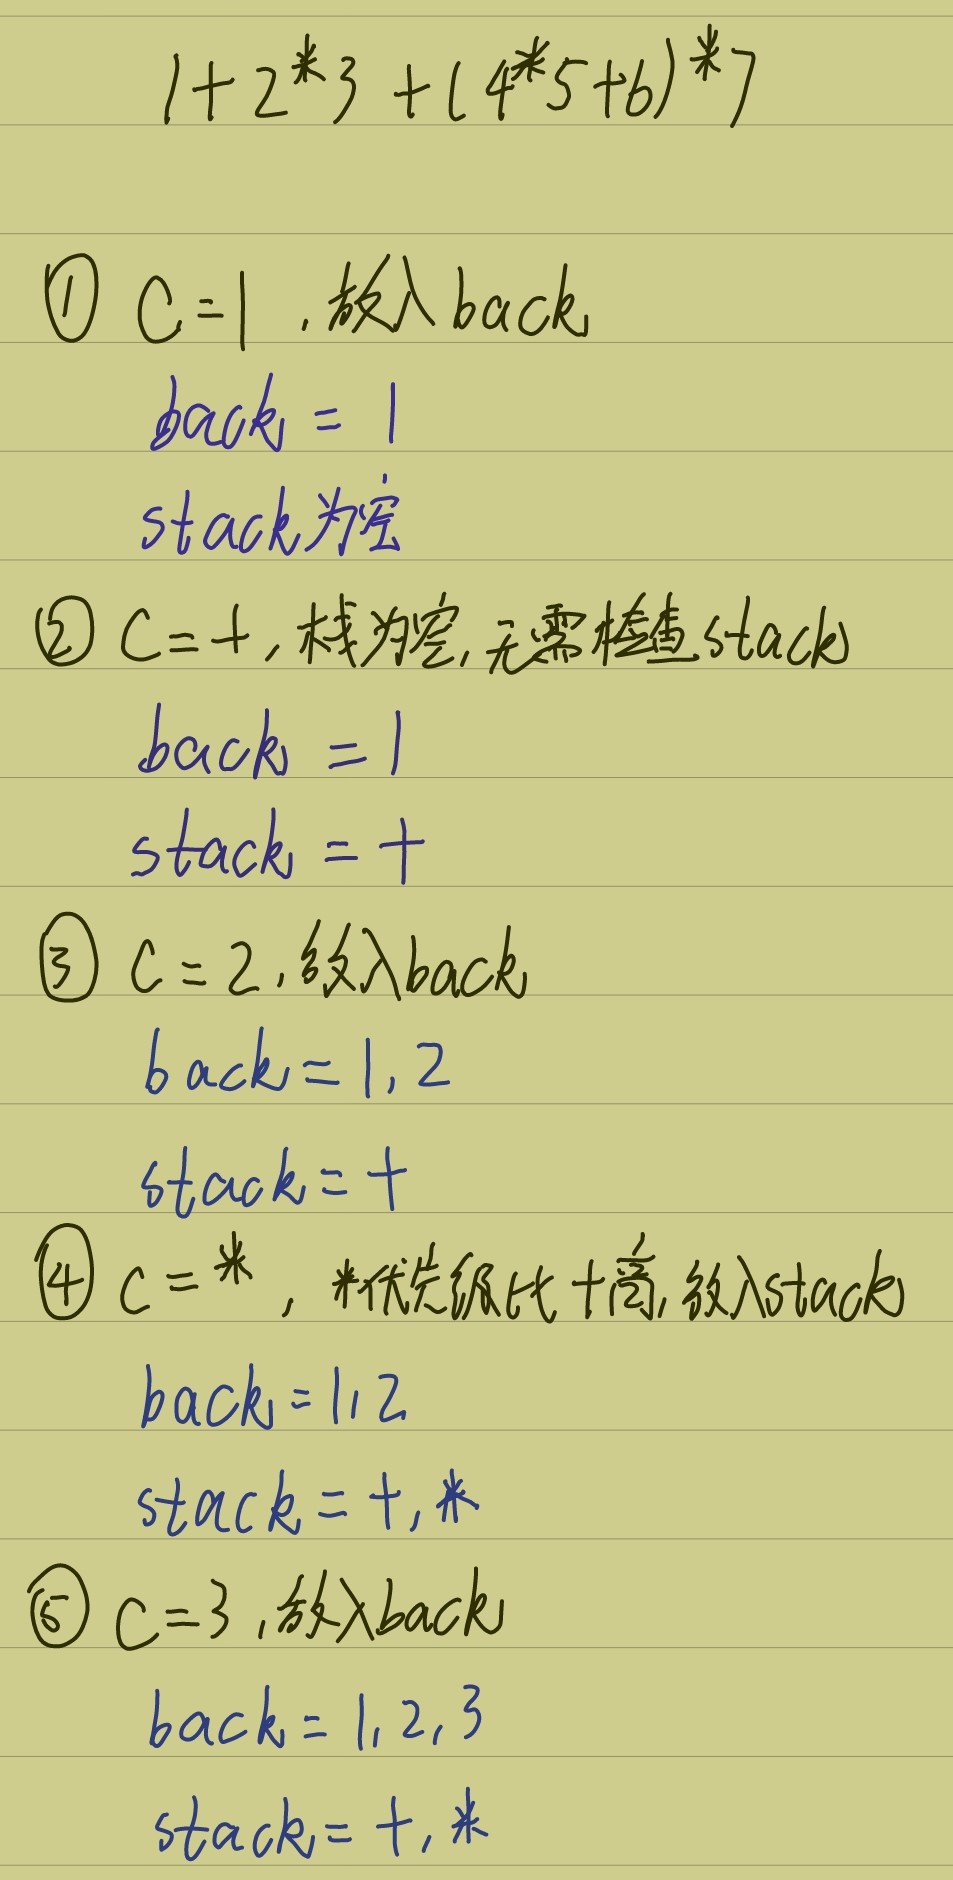 1+2*3+(4*5+6)*7
① C=1,放入back
back = 1
stack为空
② C=+,栈为空,无需检查stack
back =1
stack = +
③ C=2,放入back
back=1,2
stack=+
④ C=*, *优先级比+高,放入stack
back=1,2
stack=+,*
⑤ C=3,放入back
back=1,2,3
stack=+,*